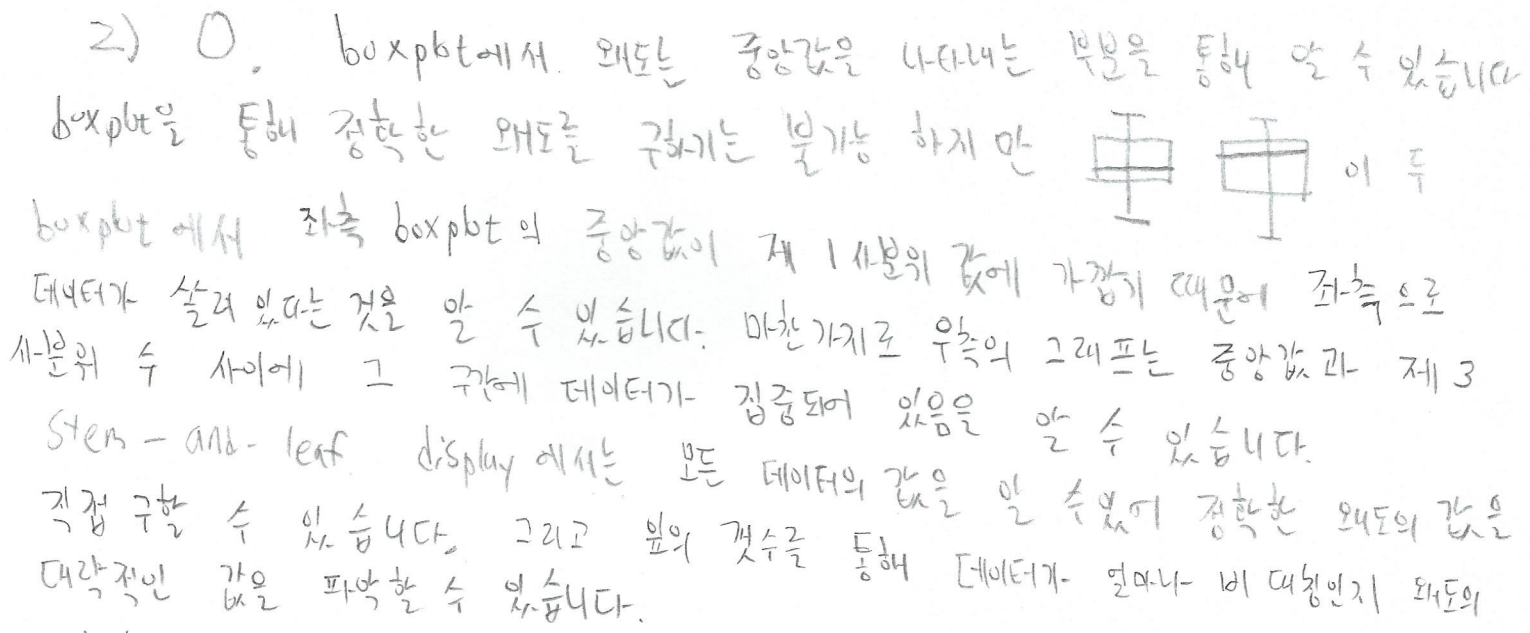 2) O. boxplot에서 왜도는 중앙값을 나타내는 부분을 통해 알 수 있습니다
boxplot을 통해 정확한 왜도를 구하기는 불가능 하지만 이 두
boxplot에서 좌측 boxplot의 중앙값이 제 1사분위 값에 가깝기 때문에 좌측으로
데이터가 쏠려 있다는 것을 알 수 있습니다. 마찬가지로 우측의 그래프는 중앙값과 제 3
사분위 수 사이에 그 구간에 데이터가 집중되어 있음을 알 수 있습니다.
stem-and-leaf display에서는 모든 데이터의 값을 알 수 있어 정확한 왜도의 값을
직접 구할 수 있습니다. 그리고 잎의 갯수를 통해 데이터가 얼마나 비대칭인지 왜도의
대략적인 값을 파악할 수 있습니다.